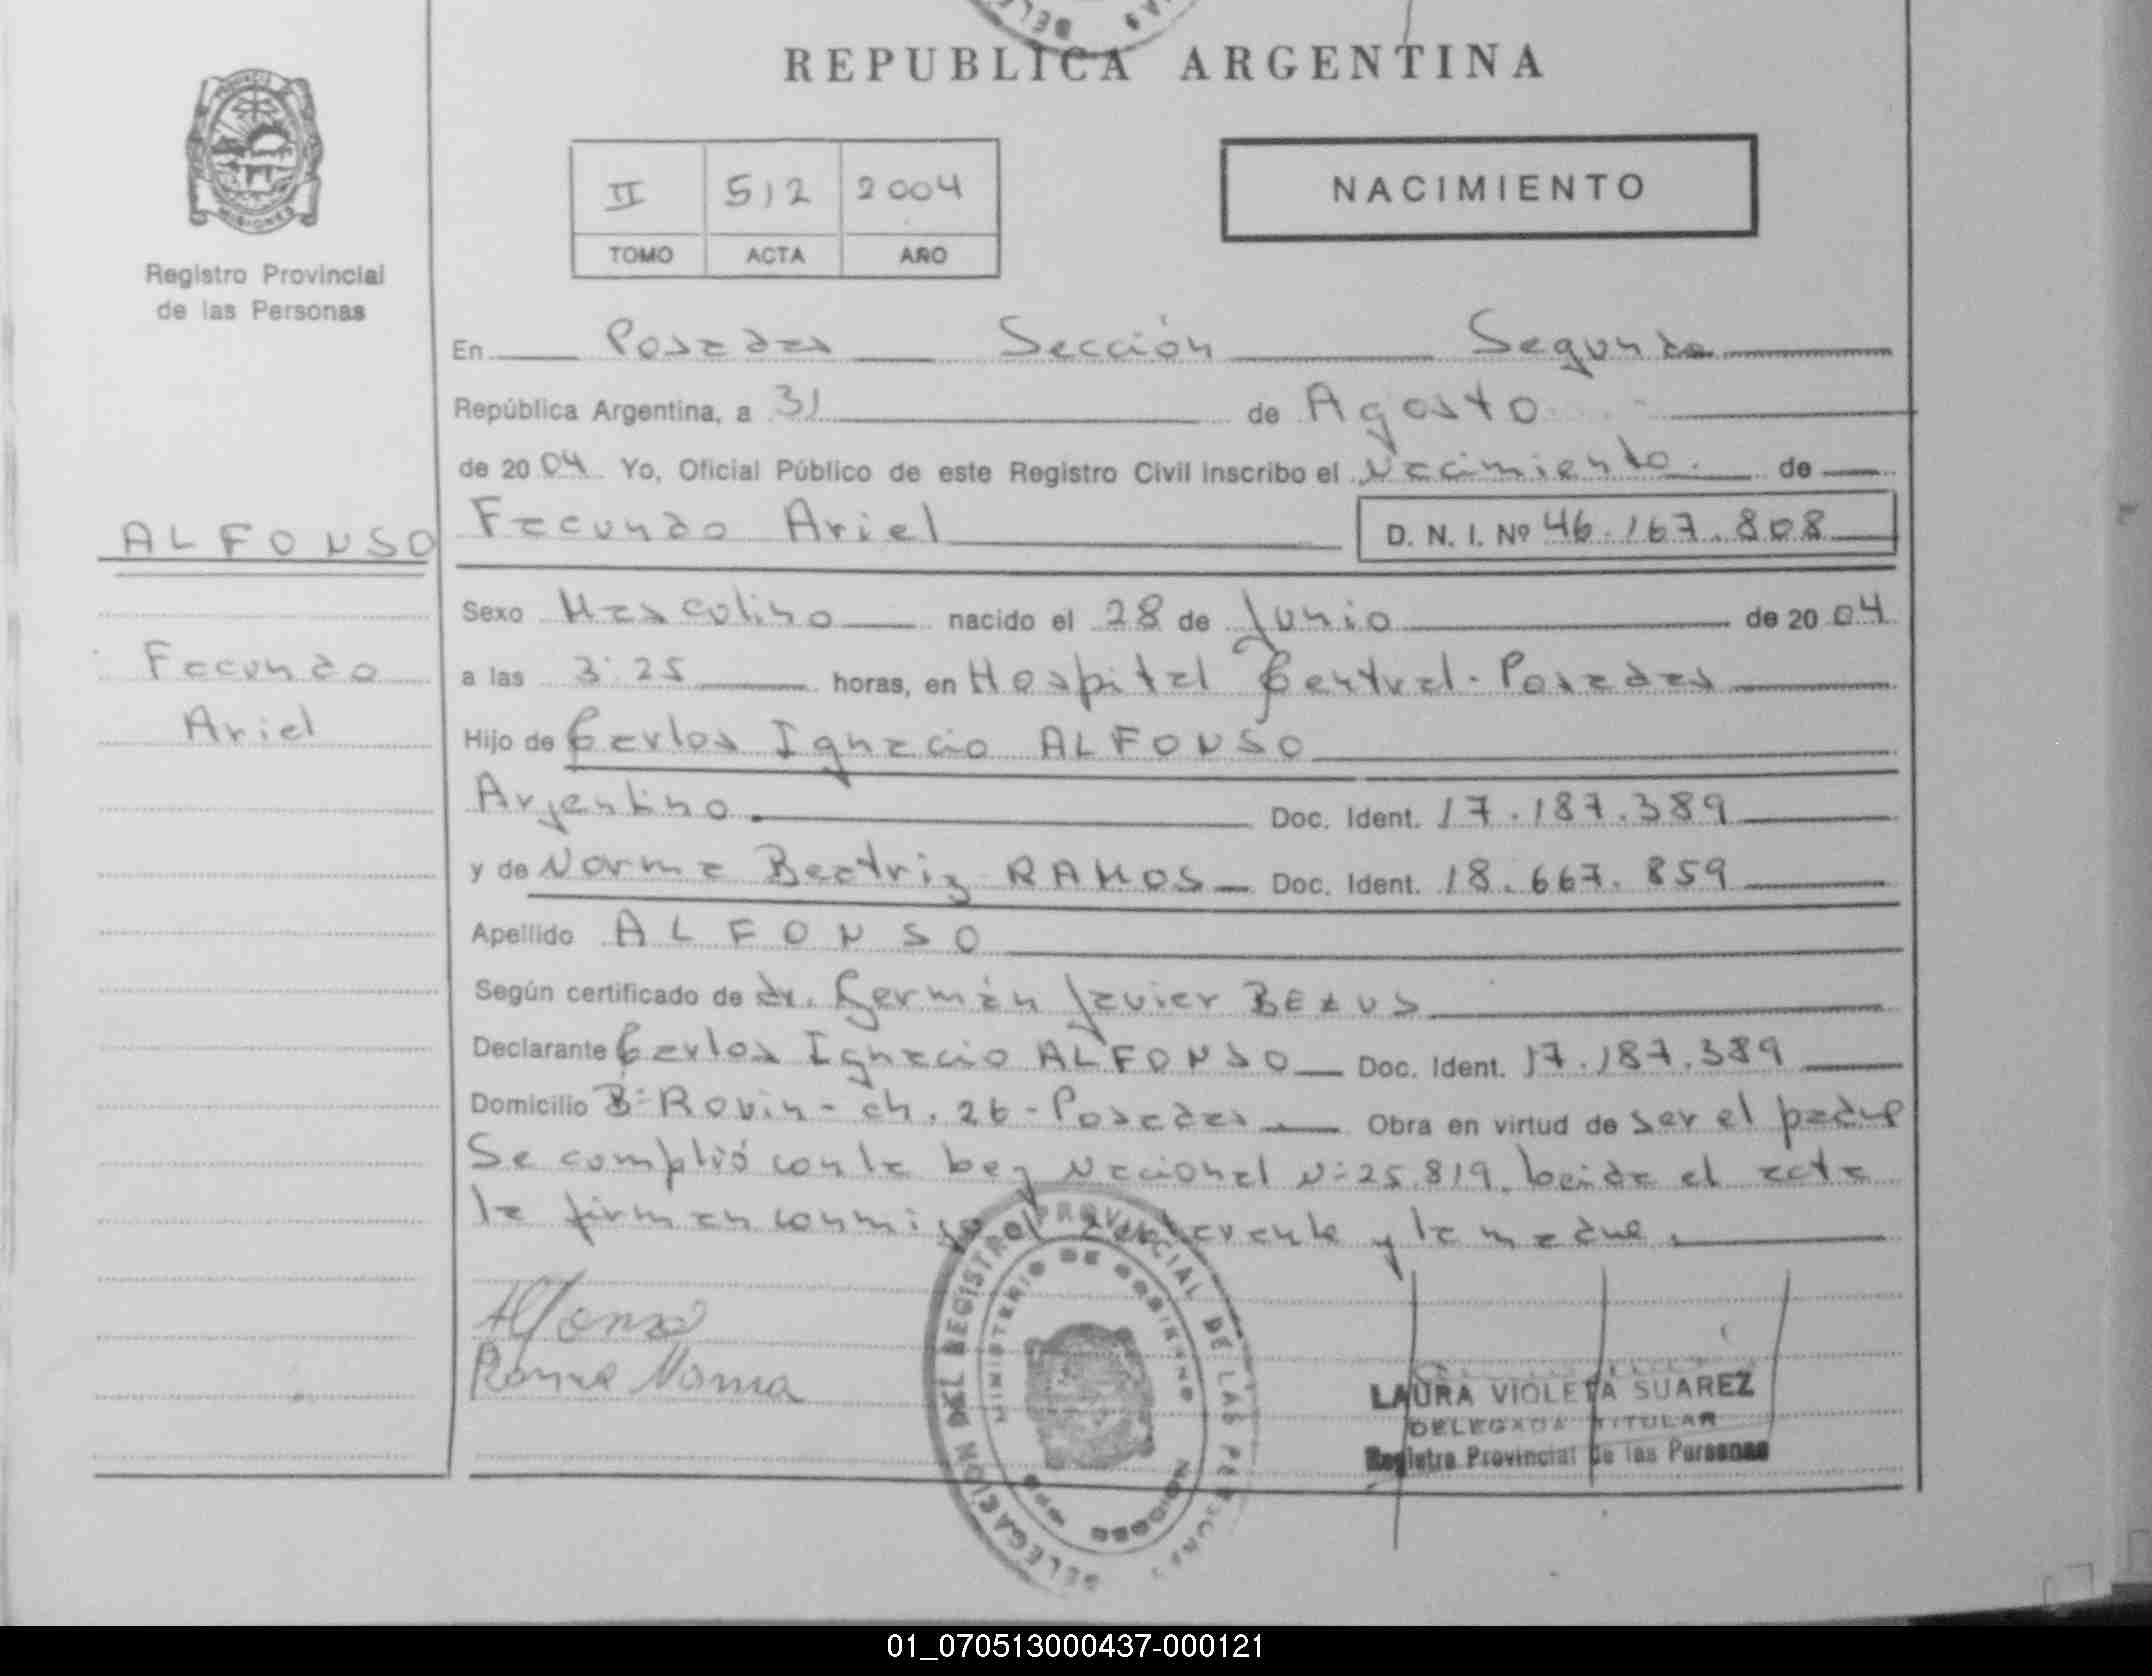 REPUBLICA ARGENTINA
MISIONES
Registro Provincial
de las Personas
II 512 2004
TOMO ACTA AÑO
NACIMIENTO
En Posadas Sección Segunda
República Argentina, a 31 de Agosto
de 2004 Yo, Oficial Público de este Registro Civil inscribo el Nacimiento. de
ALFONSO
Facundo Ariel D. N. I. Nº 46.167.808
Sexo Masculino nacido el 28 de Junio de 2004
Facundo
Ariel
a las 3:25 horas, en Hospital Central - Posadas
Hijo de Carlos Ignacio ALFONSO
Argentino Doc. Ident. 17.187.389
y de Norma Beatriz RAMOS Doc. Ident. 18.667.859
Apellido ALFONSO
Según certificado de dr. Germán Javier BEZUS
Declarante Carlos Ignacio ALFONSO Doc. Ident. 17.187.389
Domicilio Bº Rovin - ch. 26 - Posadas Obra en virtud de ser el padre
Se cumplió con la Ley Nacional Nº 25.819. Leída el acta
la firman conmigo el declarante y la madre.
Alfonso
Ramos Norma
DELEGACION DEL REGISTRO PROVINCIAL DE LAS PERSONAS
MINISTERIO DE GOBIERNO
LAURA VIOLETA SUAREZ
DELEGADA TITULAR
Registro Provincial de las Personas
01_070513000437-000121